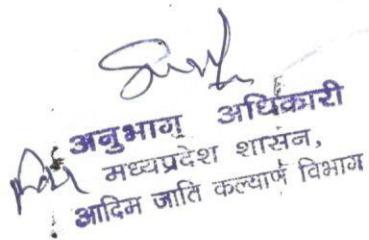 अनुभाग अधिकारी
मध्यप्रदेश शासन,
आदिम जाति कल्याण विभाग